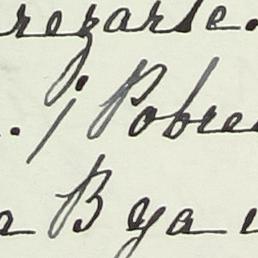 rezarle.
. ¡Pobre
a B ya